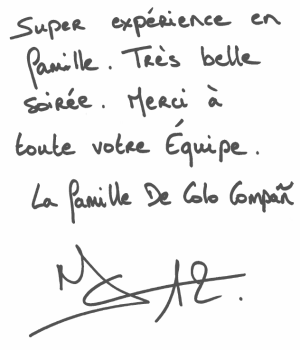 Super expérience en
famille. Très belle
soirée. Merci à
toute votre Équipe.
La famille De Colo Compañ